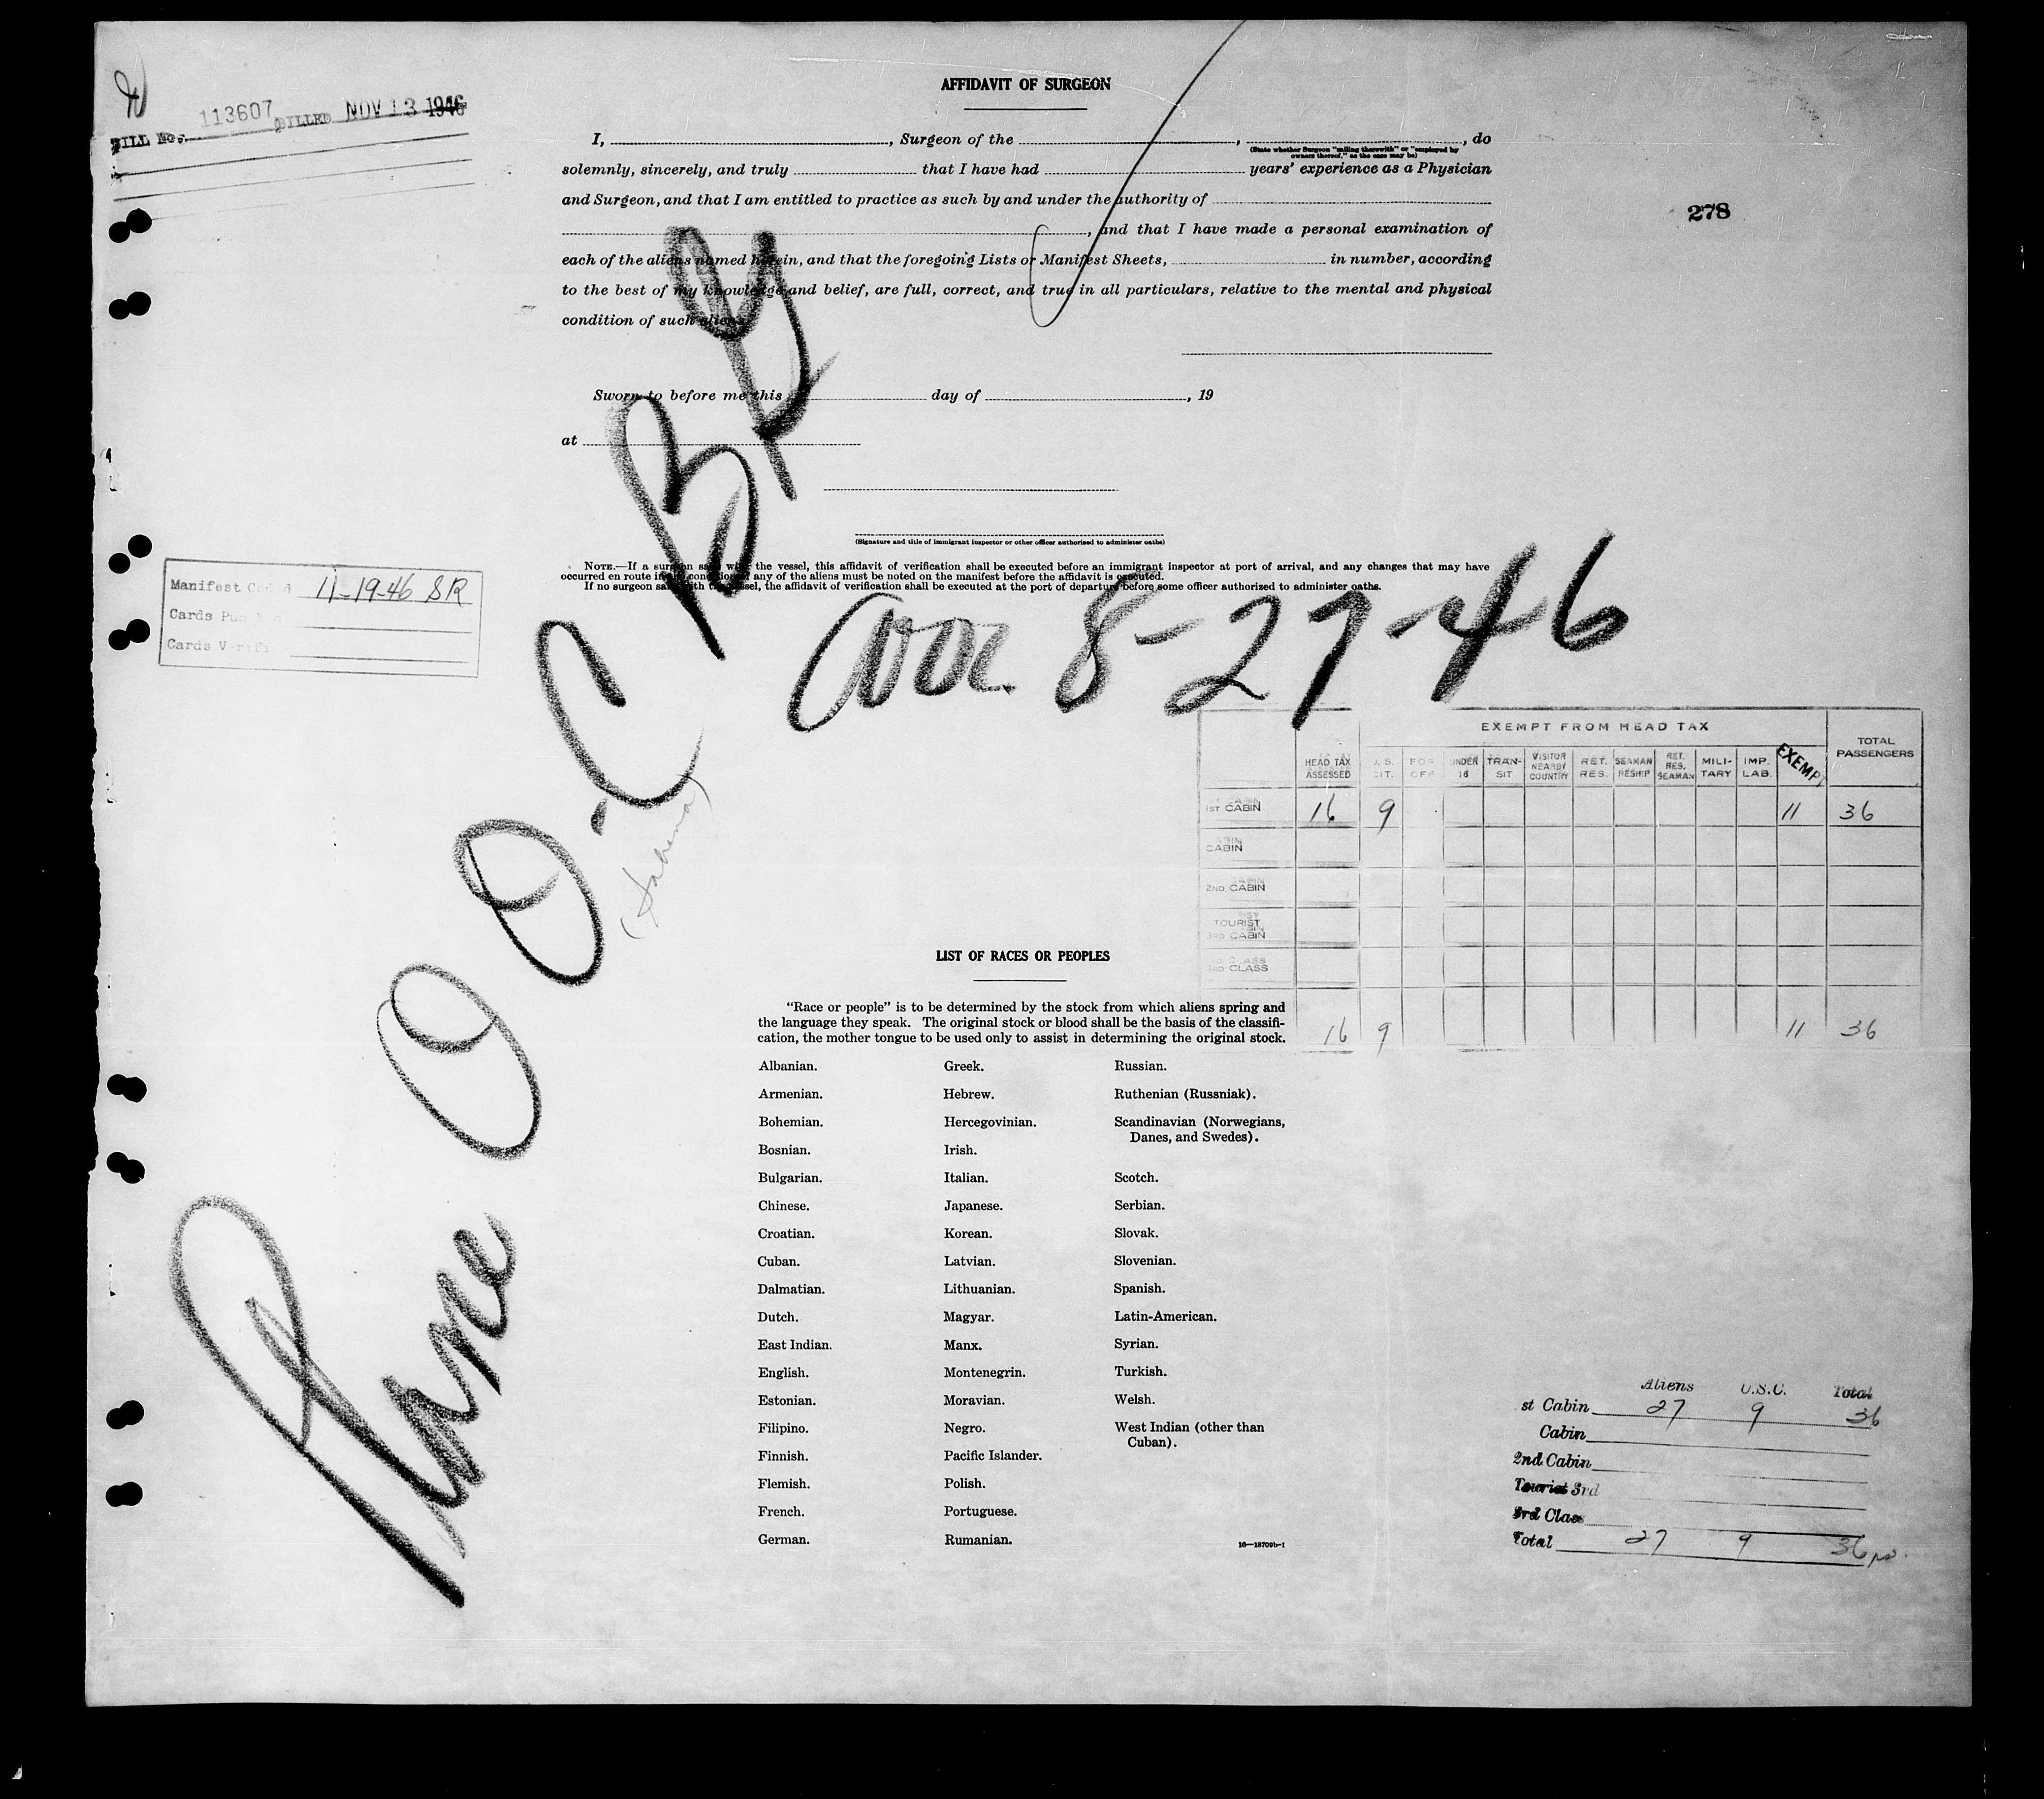 BILL No. 113607 BILLED NOV 13 1946
AFFIDAVIT OF SURGEON
I, , Surgeon of the , , do
(State whether Surgeon "sailing therewith" or "employed by
owners thereof," as the case may be)
solemnly, sincerely, and truly that I have had years' experience as a Physician
and Surgeon, and that I am entitled to practice as such by and under the authority of
, and that I have made a personal examination of
each of the aliens named herein, and that the foregoing Lists or Manifest Sheets, in number, according
to the best of my knowledge and belief, are full, correct, and true in all particulars, relative to the mental and physical
condition of such aliens.
278
Sworn to before me this day of , 19
at
(Signature and title of immigrant inspector or other officer authorized to administer oaths)
NOTE.—If a surgeon sails with the vessel, this affidavit of verification shall be executed before an immigrant inspector at port of arrival, and any changes that may have
occurred en route in the condition of any of the aliens must be noted on the manifest before the affidavit is executed.
If no surgeon sails with the vessel, the affidavit of verification shall be executed at the port of departure before some officer authorized to administer oaths.
Manifest Coded 11-19-46 SR
Cards Punched
Cards Verified
Plane OO-CBG
(Sabena)
arr. 8-27-46
EXEMPT FROM HEAD TAX
HEAD TAX ASSESSED U.S. CIT. FOR OFF UNDER 16 TRAN-SIT VISITOR NEARBY COUNTRY RET. RES. SEAMAN RESHIP RET. RES. SEAMAN MILI-TARY IMP. LAB. EXEMPT TOTAL PASSENGERS
1ST CABIN 16 9 11 36
CABIN
2ND CABIN
TOURIST
3RD CABIN
3RD CLASS
16 9 11 36
LIST OF RACES OR PEOPLES
"Race or people" is to be determined by the stock from which aliens spring and
the language they speak. The original stock or blood shall be the basis of the classifi-
cation, the mother tongue to be used only to assist in determining the original stock.
Albanian.
Armenian.
Bohemian.
Bosnian.
Bulgarian.
Chinese.
Croatian.
Cuban.
Dalmatian.
Dutch.
East Indian.
English.
Estonian.
Filipino.
Finnish.
Flemish.
French.
German.
Greek.
Hebrew.
Hercegovinian.
Irish.
Italian.
Japanese.
Korean.
Latvian.
Lithuanian.
Magyar.
Manx.
Montenegrin.
Moravian.
Negro.
Pacific Islander.
Polish.
Portuguese.
Rumanian.
Russian.
Ruthenian (Russniak).
Scandinavian (Norwegians,
Danes, and Swedes).
Scotch.
Serbian.
Slovak.
Slovenian.
Spanish.
Latin-American.
Syrian.
Turkish.
Welsh.
West Indian (other than
Cuban).
16—18709b-1
Aliens U.S.C. Total
st Cabin 27 9 36
Cabin
2nd Cabin
Tourist 3rd
3rd Class
Total 27 9 36